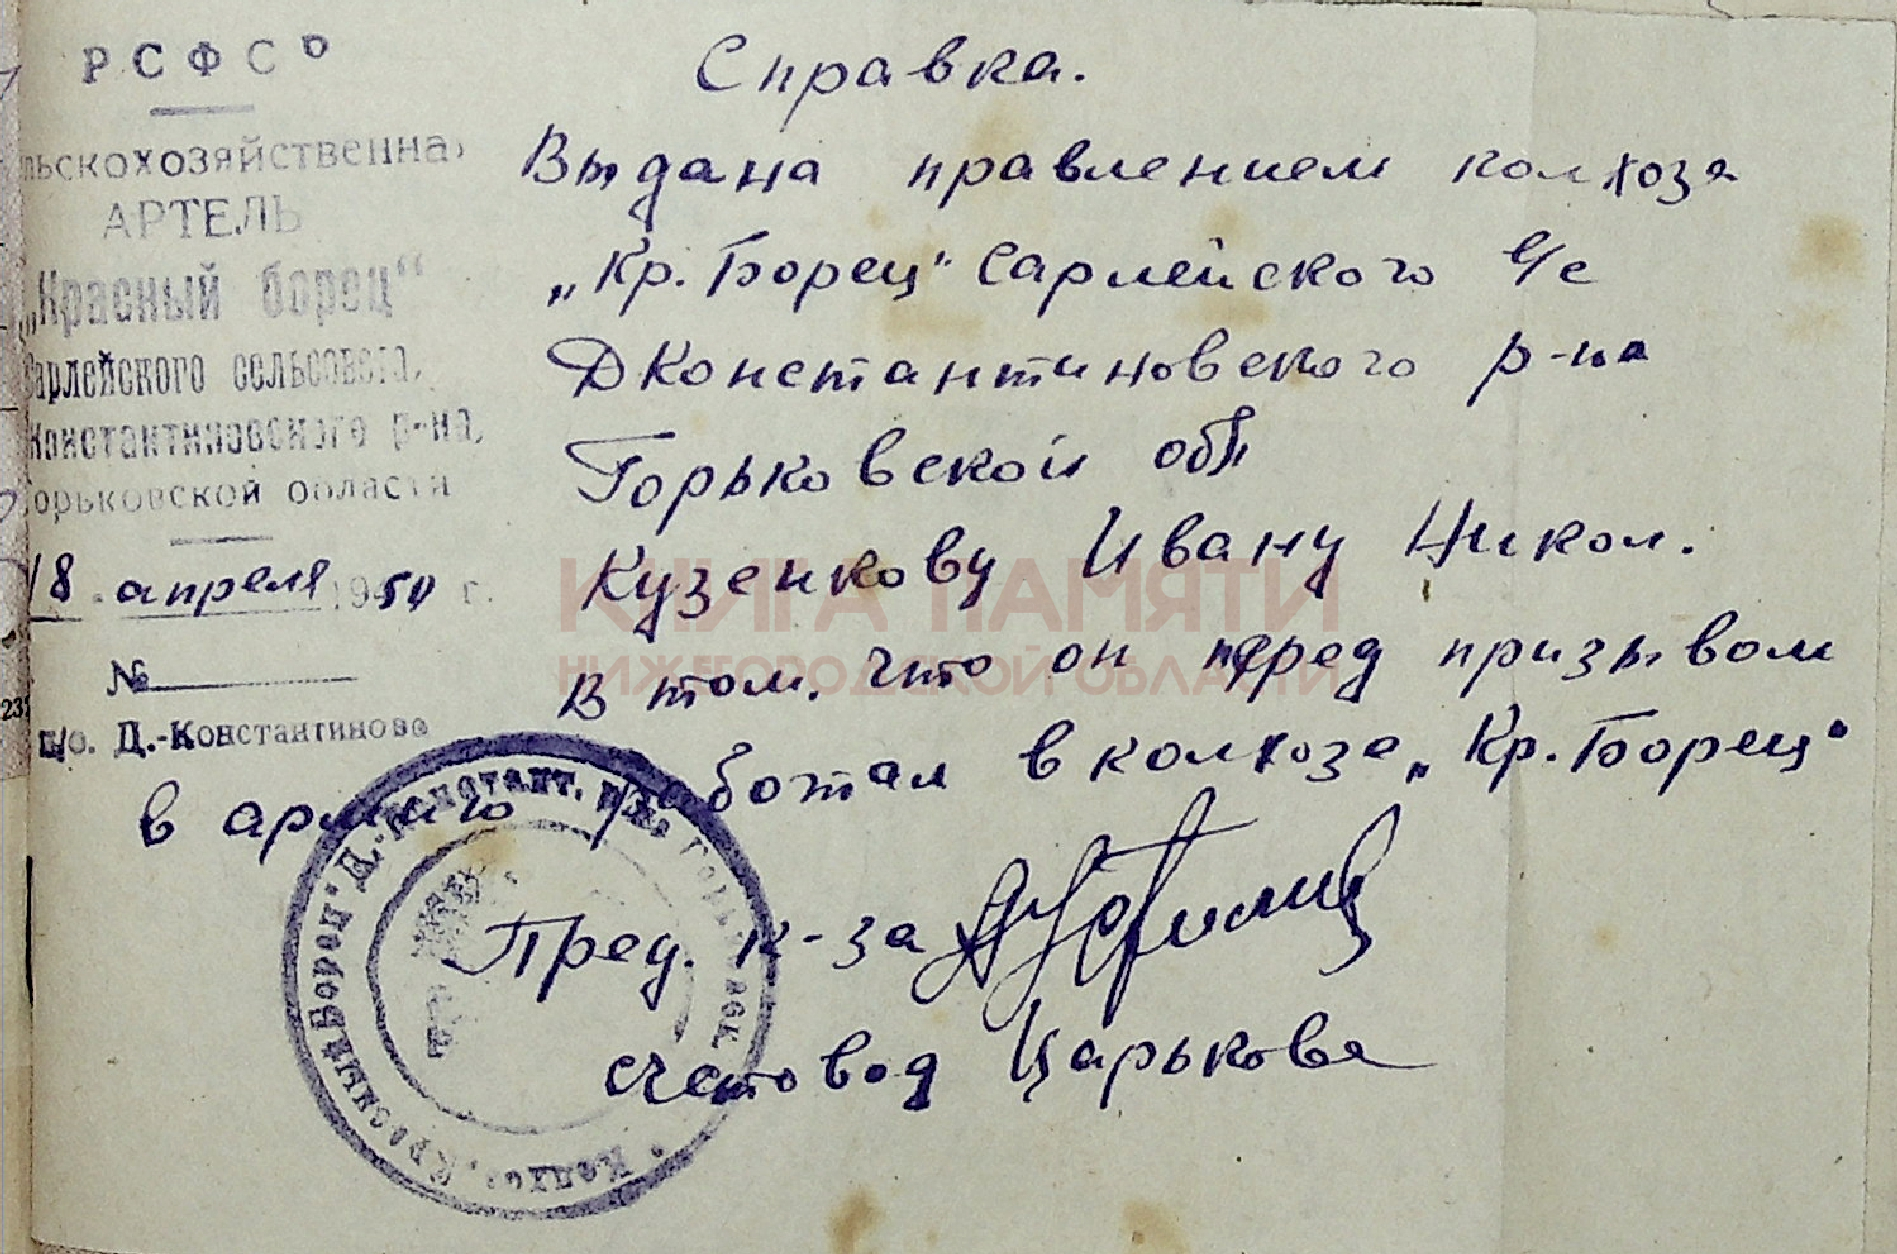 РСФС
льскохозяйственна
АРТЕЛЬ
„Красный борец“
Сарлейского сельсовета,
Константиновского р-на,
Горьковской области
18 апреля 1950 г.
№
п/о. Д.-Константиново
Справка.
Выдана правлением колхоза
„Кр. Борец" Сарлейского с/с
ДКонстантиновского р-на
Горьковской обл
Кузенкову Ивану Никол.
в том, что он перед призывом
в армию работал в колхозе „Кр. Борец"
Пред. к-за
счетовод Царькова
Колхоз „Красный Борец" Д.-Констант. р-на, Горьковск.
КНИГА ПАМЯТИ
НИЖЕГОРОДСКОЙ ОБЛАСТИ
23